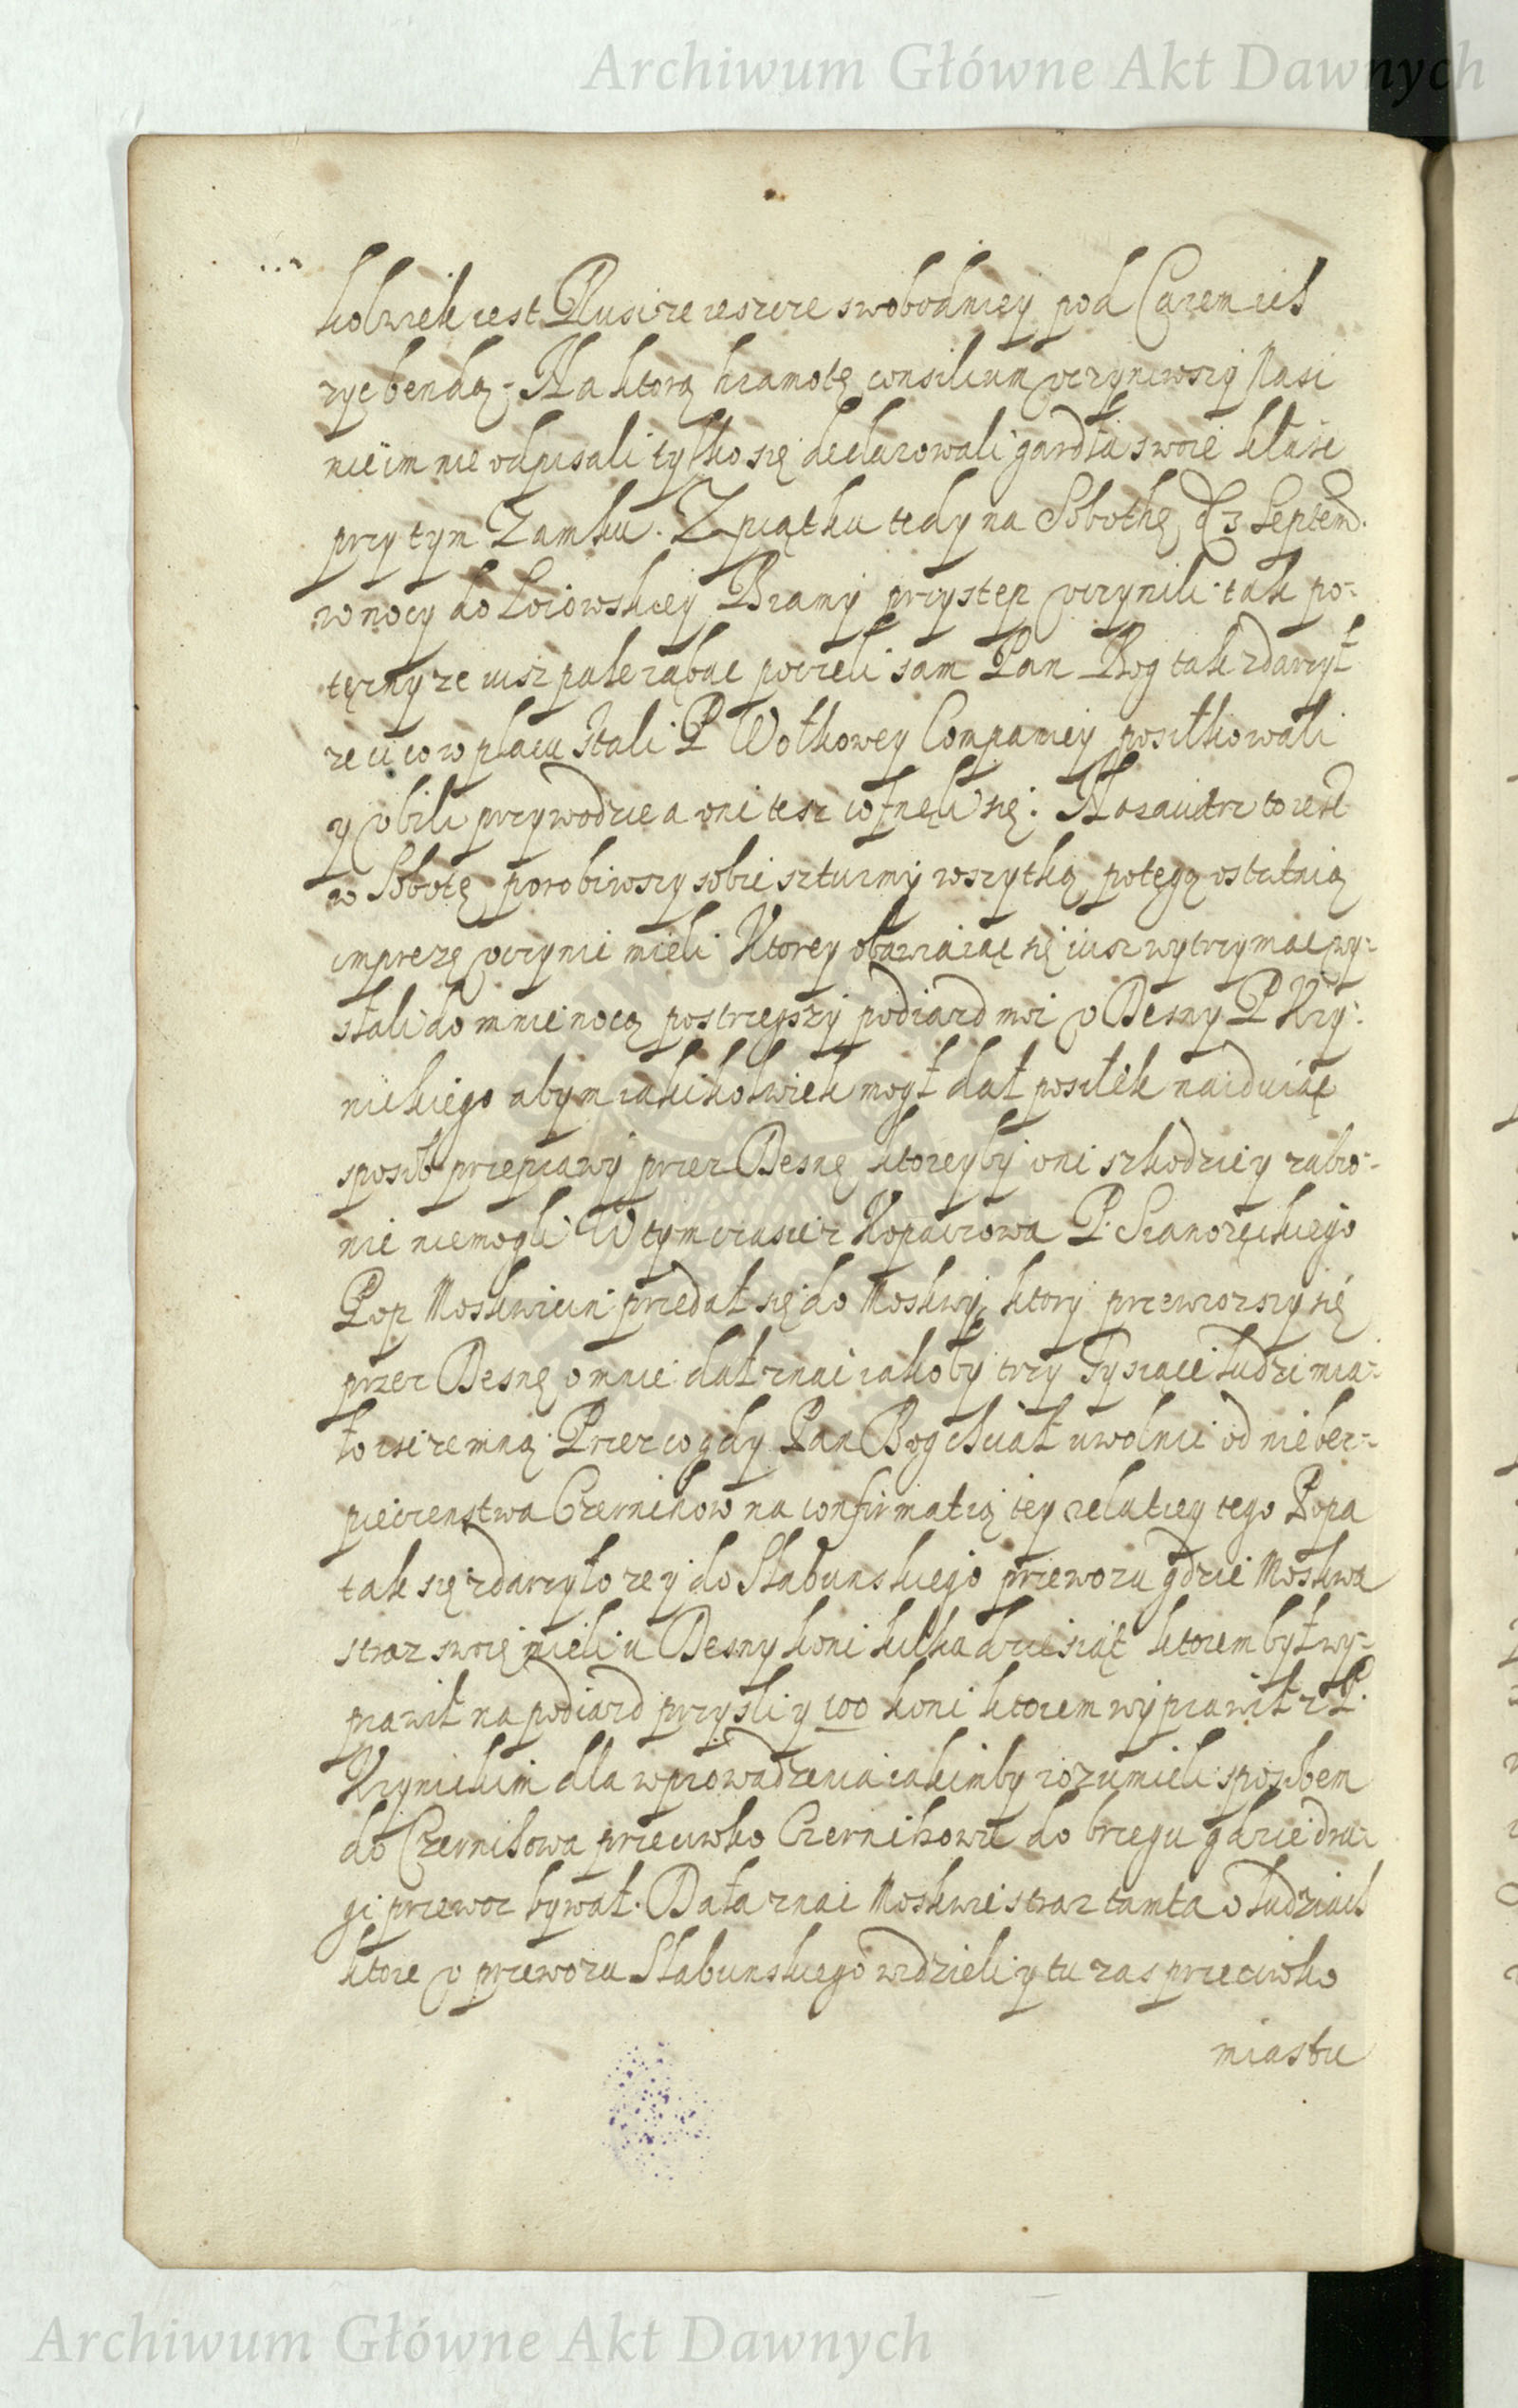 Archiwum Główne Akt Dawnych
kolwiek iest Rusi ze ieszcze swobodniey pod Carem ich
zyc bendą. Na ktorą hramotę consilium vczyniwszy Nasi
nic im nie odpisali tylko się declarowali gardła swoie kłasc
przy tym Zamku. Z piątku tedy na Sobothę d 3 Septem.
w nocy do Loiowskiey Bramy przystęp vczynili tak po-
tęzny ze iusz pale rąbac poczeli sam Pan Bog tak zdarzył
ze ci co w placu stali P Wołkowey Companiey posiłkowali
y vbili przywodzce a oni tesz cofnęli się. Nazaiutrz to iest
w Sobotę porobiwszy sobie szturmy wszytką potęgą ostatnią
imprezę vczynic mieli. Ktorey obawiaiąc się iusz wytrzymac wy-
słali do mnie nocą postrzegszy podiazd moi v Desny P Kry-
nickiego abym iakikolwiek mogł dał posiłek naiduiąc
sposob przeprawy przez Desnę ktoreyby oni szkodzic y zabro-
nic niemogli. W tym czasie z Kopaczowa P.
Pop Moskwicin przedał się do Moskwy, ktory przewiozszy się
przez Desnę o mnie dał znac iakoby trzy Tysiące ludzi mia-
ło isc ze mną. Przez co gdy Pan Bog chciał uwolnic od niebez-
pieczenstwa Czernihow na confirmatią tey relatiey tego Popa
tak się zdarzyło ze y do Słabunskiego przewozu gdzie Moskwa
straz swoię mieli u Desny koni kilkadziesiąt ktorem był wy-
prawił na podiazd przyśli y 100 koni ktorem wyprawił z P.
Krynickim dla wprowadzenia iakimby rozumieli sposobem
do Czernihowa przeciwko Czernihowu do brzegu gdzie dru-
gi przewoz bywał. Dała znac Moskwie straz tamta o ludziach
ktore v przewozu Słabunskiego widzieli y tu zas przeciwko
miastu
Archiwum Główne Akt Dawnych